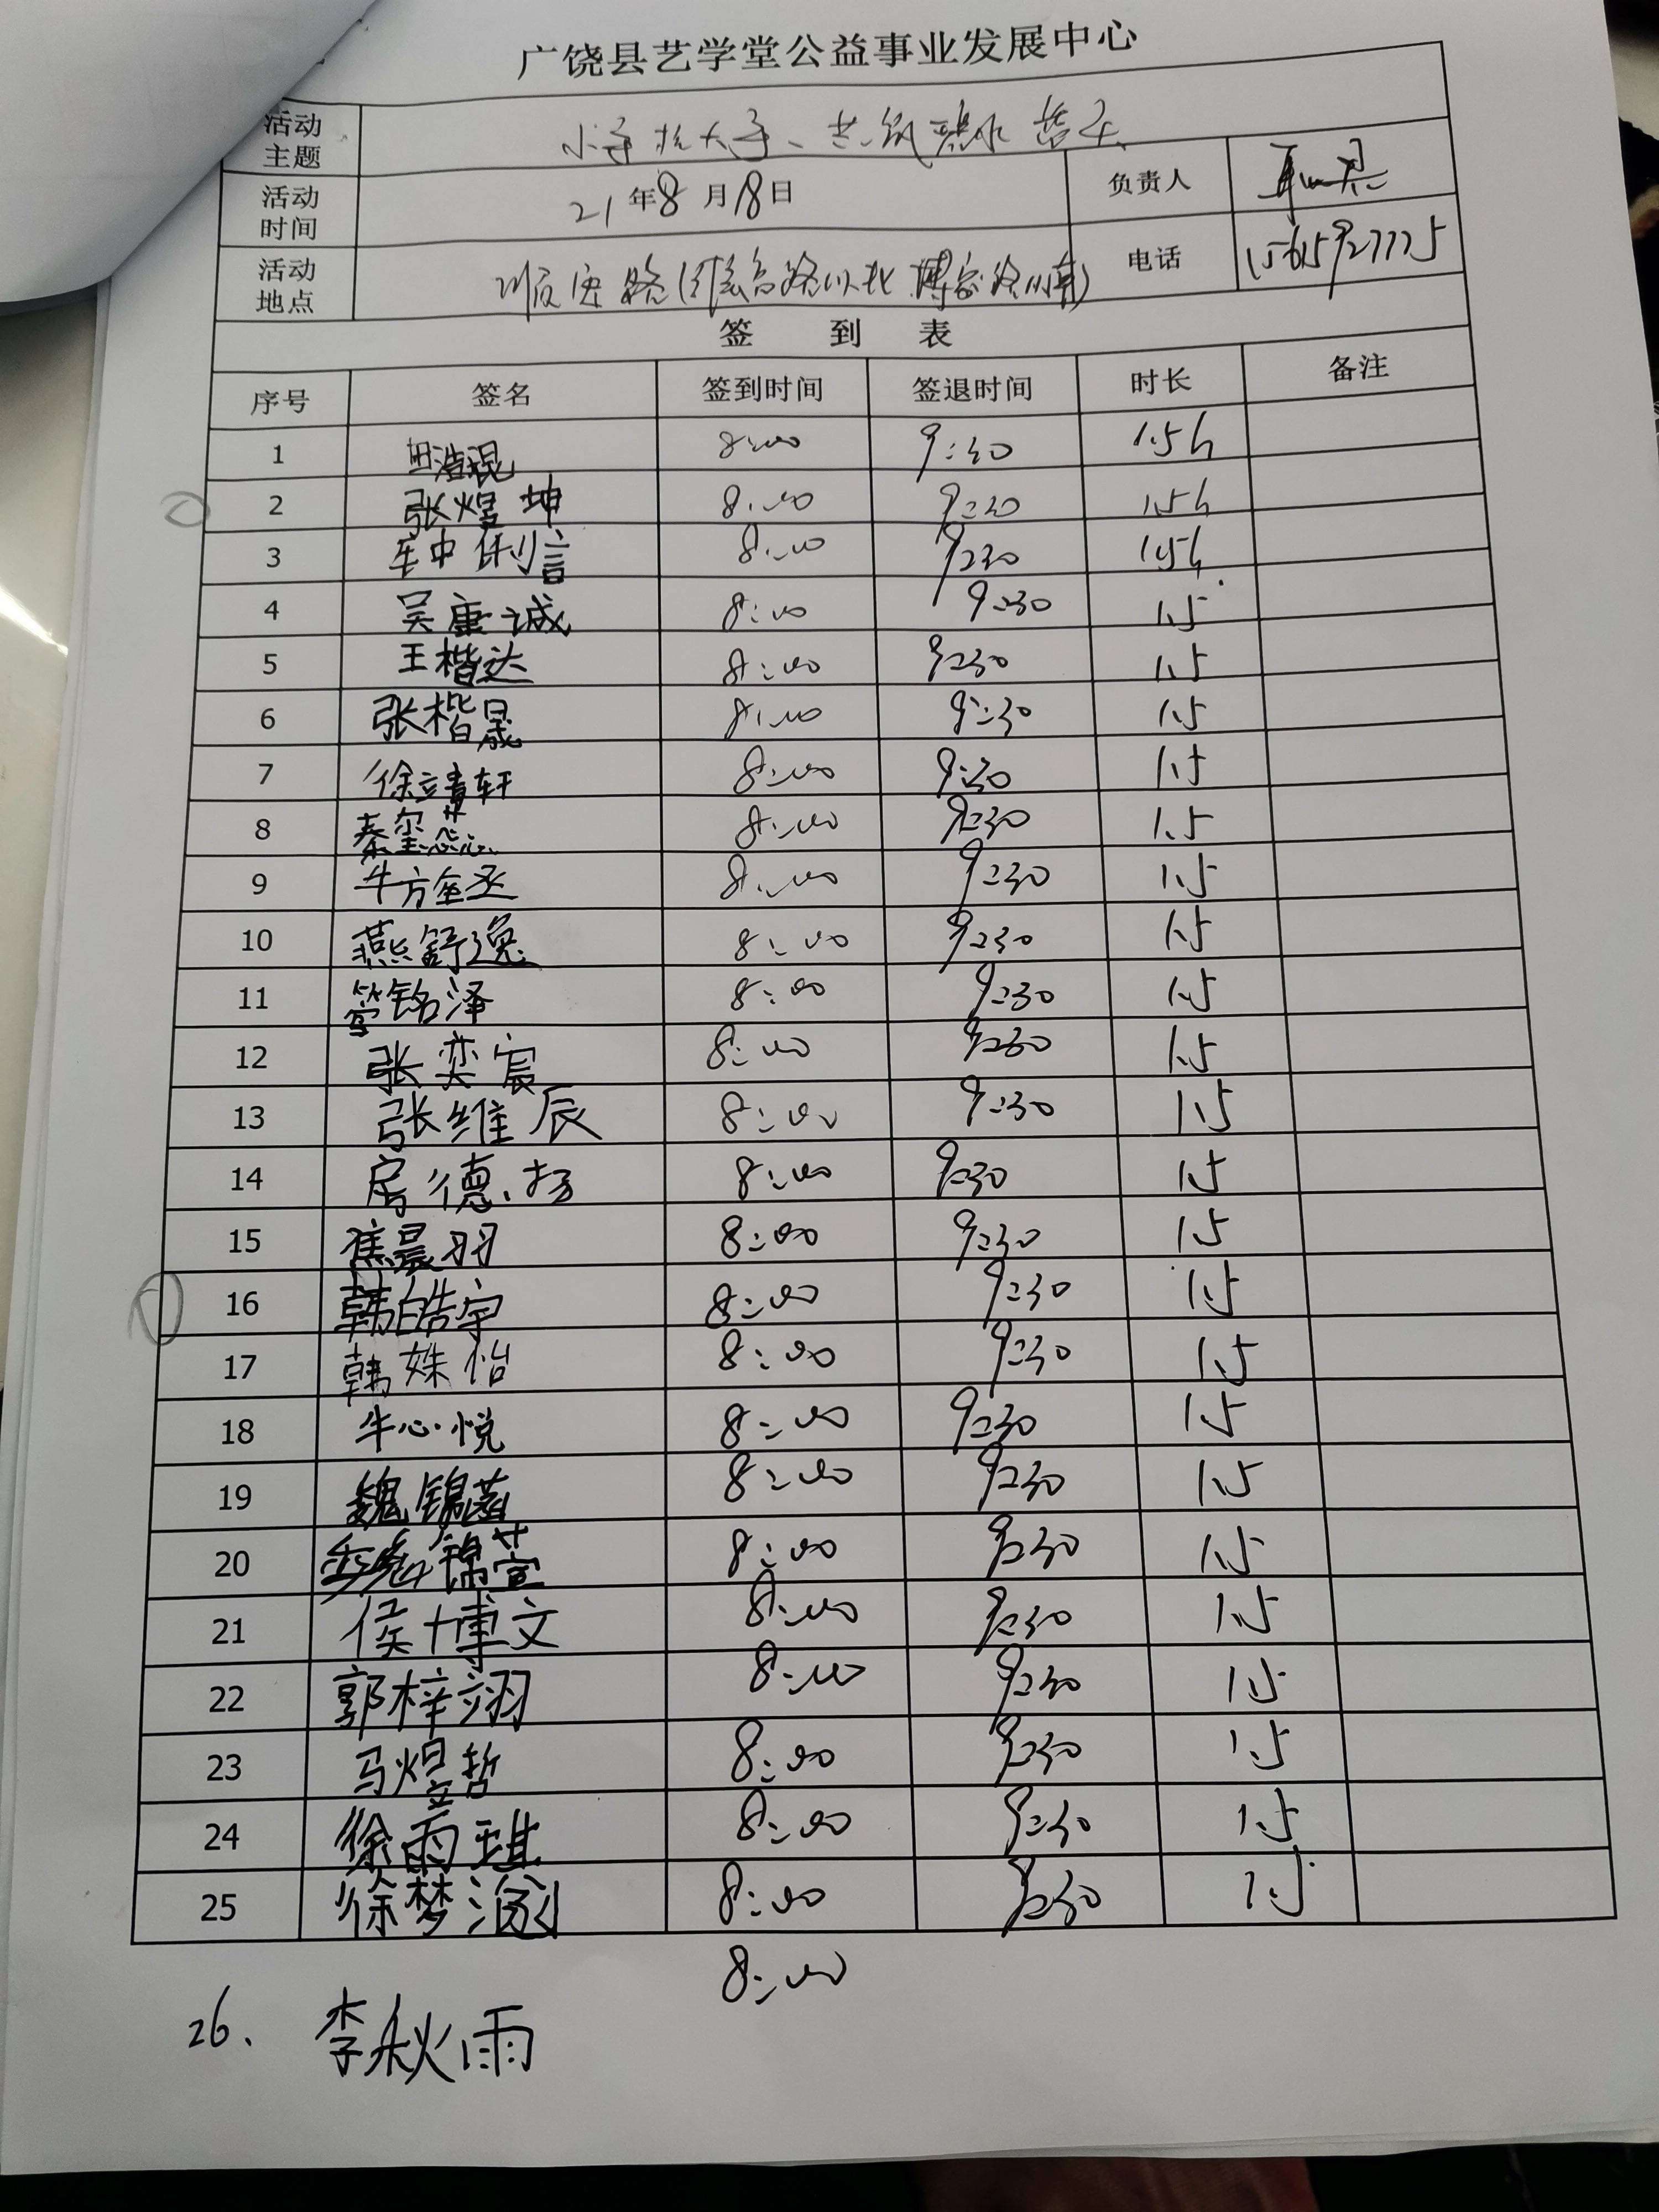 广饶县艺学堂公益事业发展中心
活动主题 小手拉大手、共筑碧水蓝天
活动时间 21年8月18日 负责人
活动地点 顺安路(维高路以北 博家路以南) 电话 15615927775
签 到 表
序号 签名 签到时间 签退时间 时长 备注
1 田浩琨 8:00 9:30 1.5h
2 张煜坤 8:00 9:30 1.5h
3 8:00 9:30 1.5h
4 吴康诚 8:00 9:30 1.5
5 王楷达 8:00 9:30 1.5
6 张楷晟 8:00 9:30 1.5
7 徐靖轩 8:00 9:30 1.5
8 秦玺蕊 8:00 9:30 1.5
9 牛方奎丞 8:00 9:30 1.5
10 燕舒逸 8:00 9:30 1.5
11 铭泽 8:00 9:30 1.5
12 张奕宸 8:00 9:30 1.5
13 张维辰 8:00 9:30 1.5
14 房德扬 8:00 9:30 1.5
15 晨羽 8:00 9:30 1.5
16 韩皓宇 8:00 9:30 1.5
17 韩姝怡 8:00 9:30 1.5
18 牛心悦 8:00 9:30 1.5
19 魏锦菡 8:00 9:30 1.5
20 锦萱 8:00 9:30 1.5
21 侯博文 8:00 9:30 1.5
22 郭梓翊 8:00 9:30 1.5
23 马煜哲 8:00 9:30 1.5
24 徐雨琪 8:00 9:30 1.5
25 徐梦 8:00 9:30 1.5
26. 李秋雨 8:00